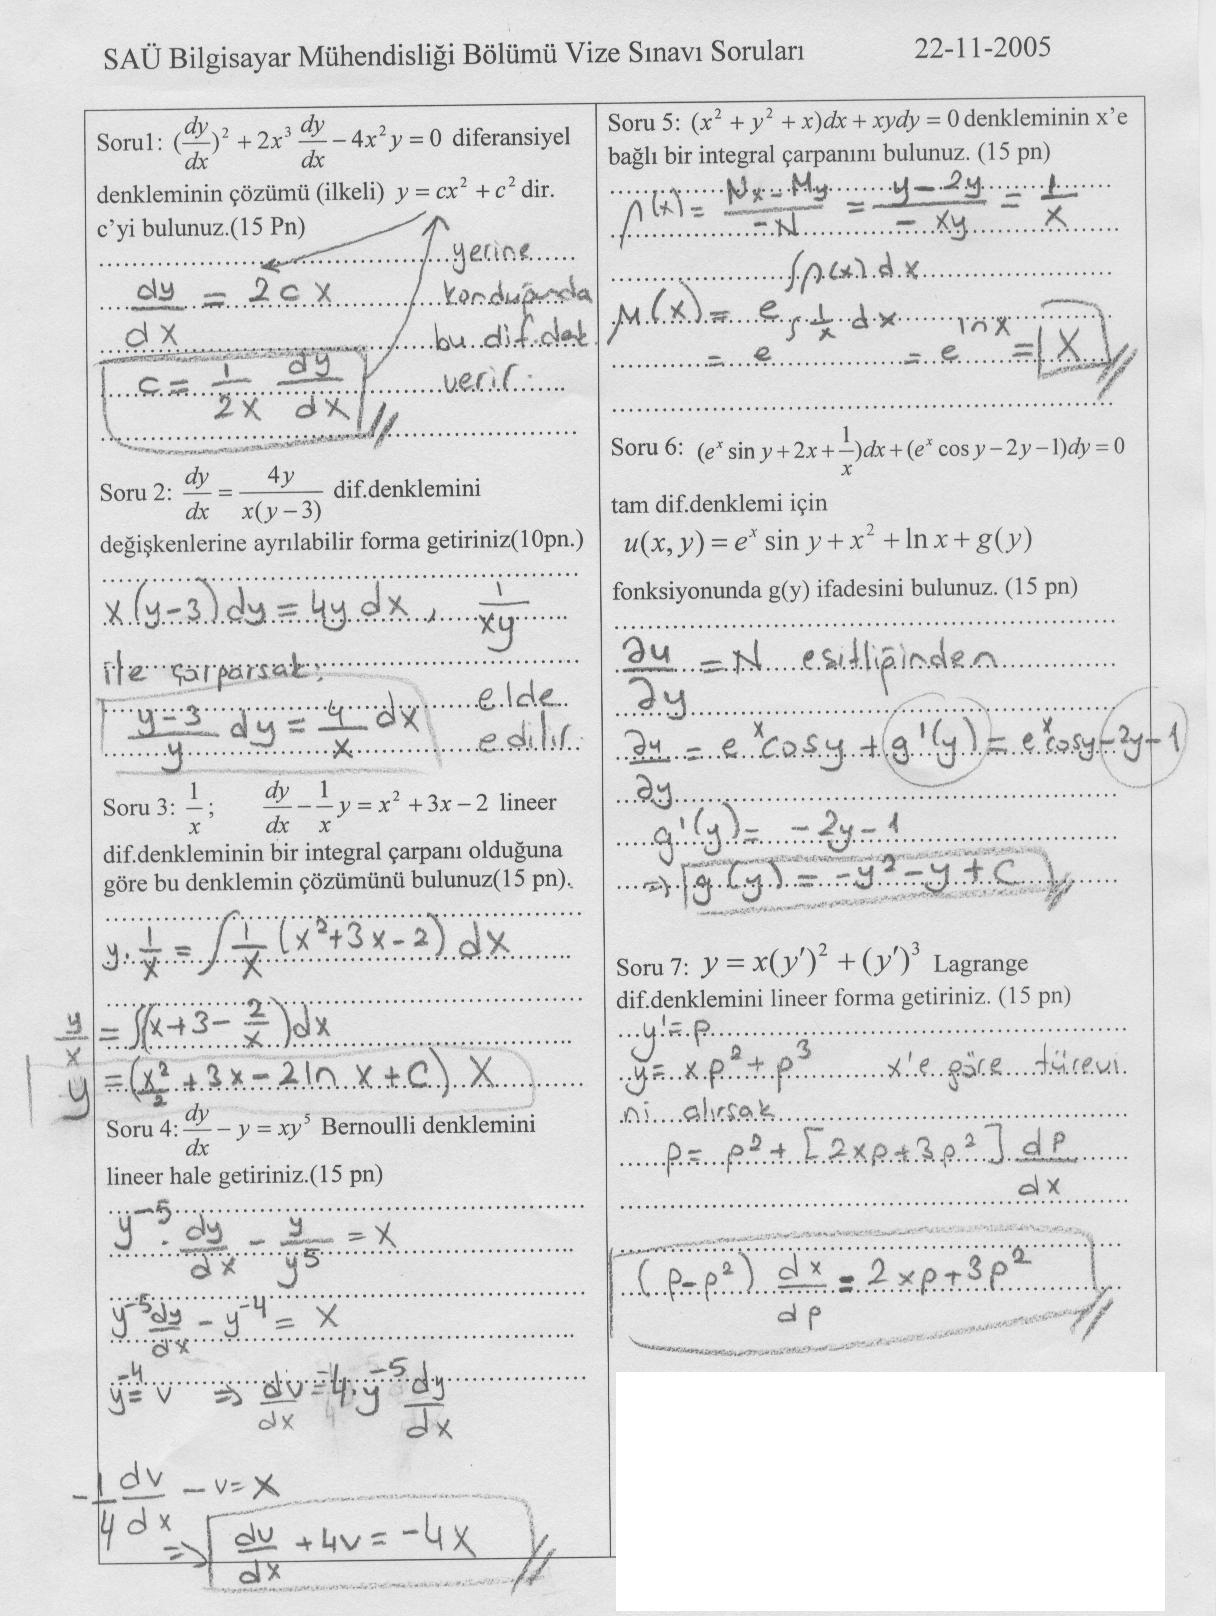 SAÜ Bilgisayar Mühendisliği Bölümü Vize Sınavı Soruları 22-11-2005
Soru1: (dy/dx)² + 2x³ dy/dx − 4x²y = 0 diferansiyel
denkleminin çözümü (ilkeli) y = cx² + c² dir.
c'yi bulunuz.(15 Pn)
yerine
dy/dx = 2cx konduğunda
bu dif.dek.
c = 1/2x dy/dx verir.
Soru 2: dy/dx = 4y/x(y−3) dif.denklemini
değişkenlerine ayrılabilir forma getiriniz(10pn.)
x(y−3)dy = 4y dx, 1/xy
ile çarparsak;
y−3/y dy = 4/x dx elde
edilir.
Soru 3: 1/x; dy/dx − 1/x y = x² + 3x − 2 lineer
dif.denkleminin bir integral çarpanı olduğuna
göre bu denklemin çözümünü bulunuz(15 pn).
y.1/x = ∫ 1/x (x²+3x−2) dx
y/x = ∫(x+3−2/x)dx
y = (x²/2 + 3x − 2 ln x + C) x
Soru 4: dy/dx − y = xy⁵ Bernoulli denklemini
lineer hale getiriniz.(15 pn)
y⁻⁵. dy/dx − y/y⁵ = x
y⁻⁵ dy/dx − y⁻⁴ = x
y⁻⁴ = v ⇒ dv/dx = −4.y⁻⁵ dy/dx
−1/4 dv/dx − v = x
⇒ dv/dx + 4v = −4x
Soru 5: (x² + y² + x)dx + xydy = 0 denkleminin x'e
bağlı bir integral çarpanını bulunuz. (15 pn)
p(x) = Nx − My/−N = y − 2y/−xy = 1/x
μ(x) = e^∫p(x).dx
= e^∫1/x dx = e^ln x = x
Soru 6: (eˣ sin y + 2x + 1/x)dx + (eˣ cos y − 2y − 1)dy = 0
tam dif.denklemi için
u(x, y) = eˣ sin y + x² + ln x + g(y)
fonksiyonunda g(y) ifadesini bulunuz. (15 pn)
∂u/∂y = N eşitliğinden
∂u/∂y = eˣcosy + g'(y) = eˣcosy − 2y − 1
g'(y) = −2y − 1
⇒ g(y) = −y² − y + C
Soru 7: y = x(y′)² + (y′)³ Lagrange
dif.denklemini lineer forma getiriniz. (15 pn)
y' = p
y = xp² + p³ x'e göre türevi
ni alırsak
p = p² + [2xp + 3p²] dp/dx
(p − p²) dx/dp = 2xp + 3p²